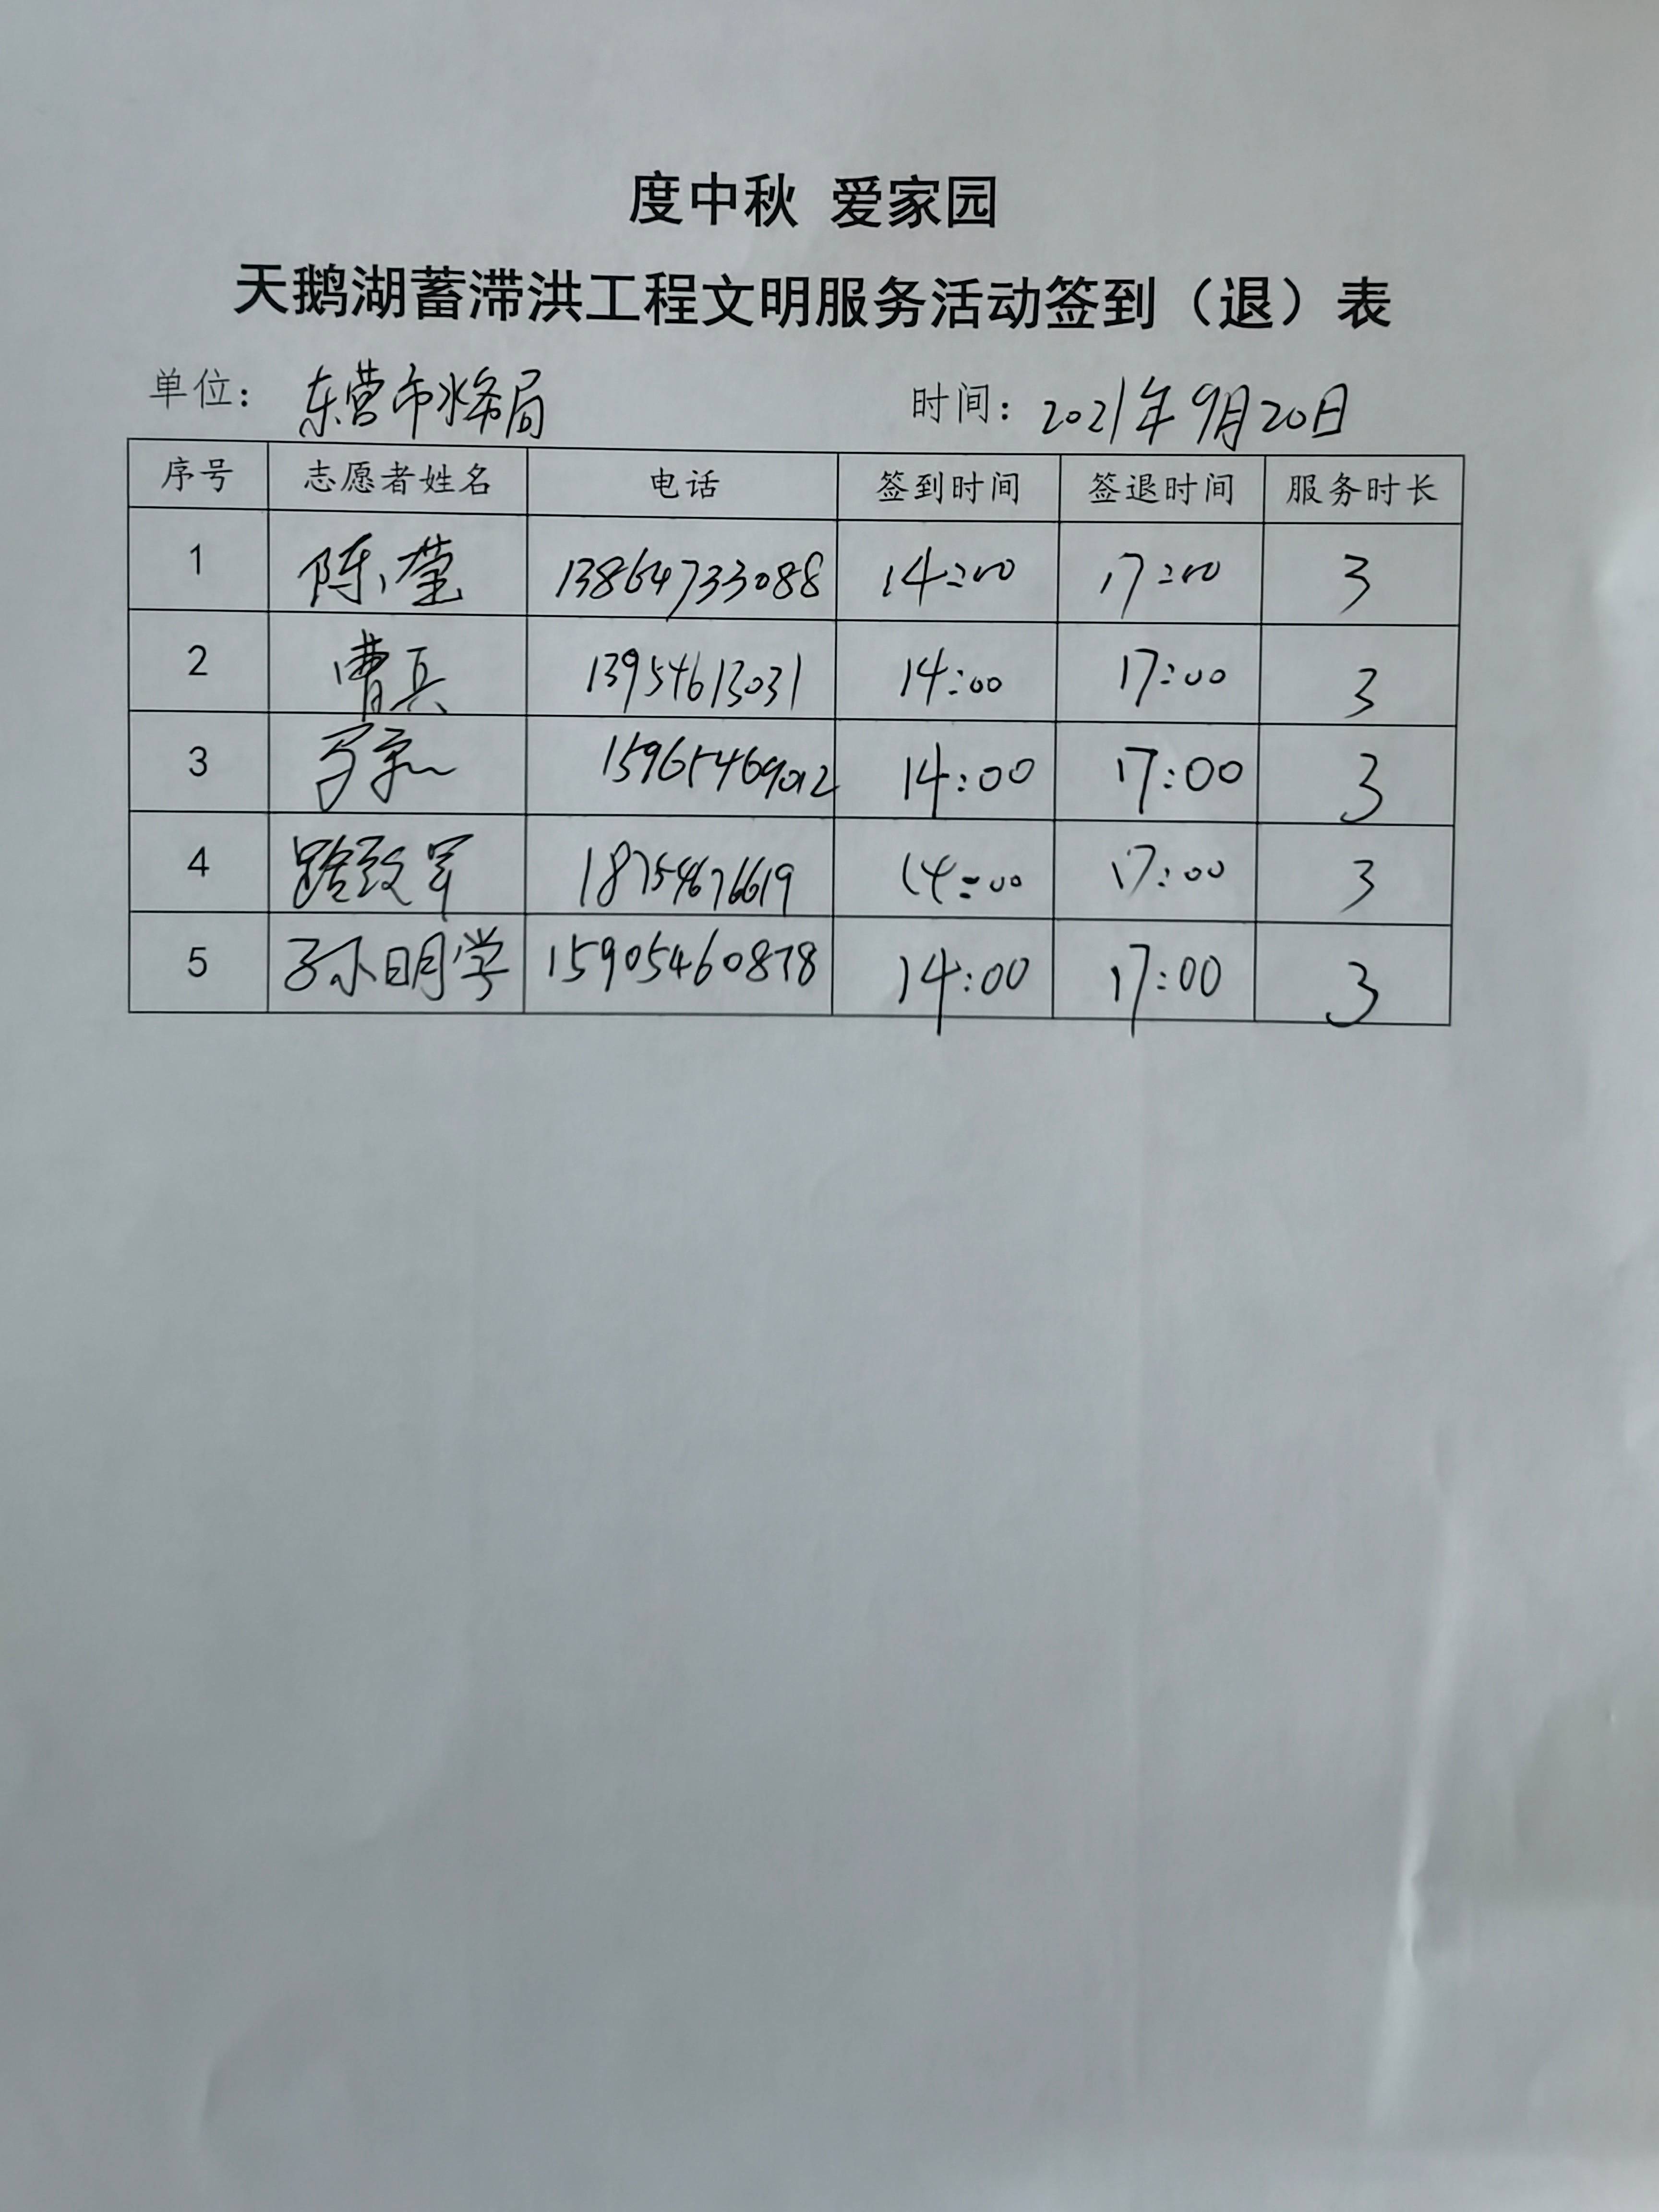 度中秋 爱家园
天鹅湖蓄滞洪工程文明服务活动签到（退）表
单位： 东营市水务局 时间：2021年9月20日
序号 志愿者姓名 电话 签到时间 签退时间 服务时长
1 陈莹 13864733088 14:00 17:00 3
2 曹兵 13954613031 14:00 17:00 3
3 15965469012 14:00 17:00 3
4 路致军 18754676619 14:00 17:00 3
5 孙明学 15905460878 14:00 17:00 3